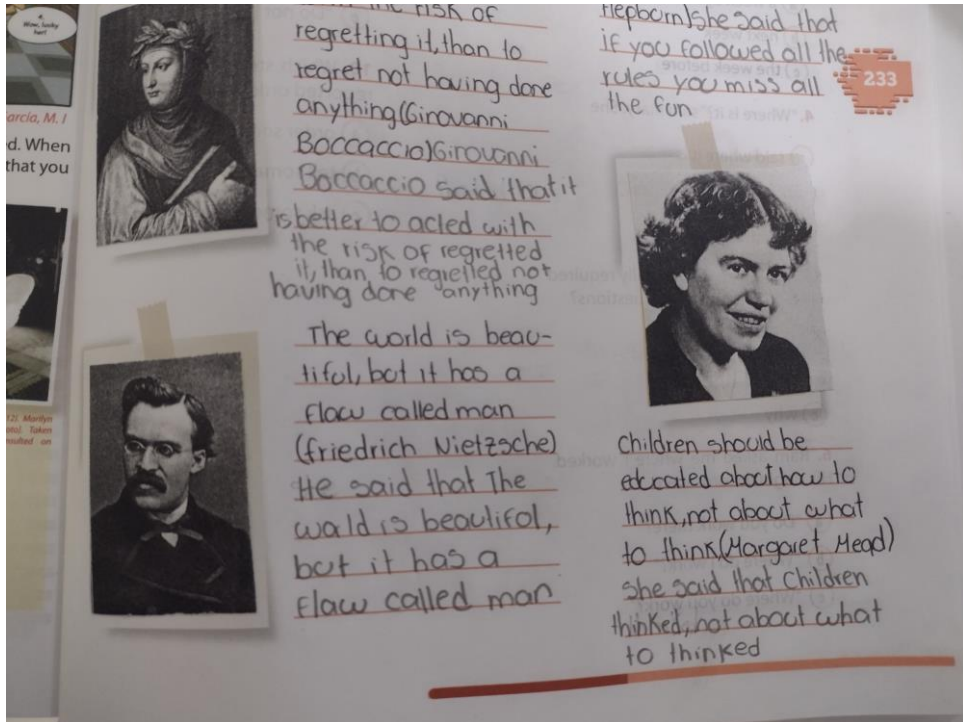 4.
Wow, lucky
her!
arcía, M. I
d. When
that you
12). Marilyn
oto]. Taken
nsulted on
the risk of
regretting it, than to
regret not having done
anything(Girovanni
Boccaccio)Girovanni
Boccaccio said that it
is better to acted with
the risk of regretted
it, than to regretted not
having done anything
The world is beau-
tiful, but it has a
flaw called man
(friedrich Nietzsche)
He said that The
world is beautiful,
but it has a
flaw called man
Hepborn)she said that
if you followed all the
rules you miss all
the fun
233
children should be
educated about how to
think, not about what
to think(Margaret Mead)
she said that children
thinked, not about what
to thinked